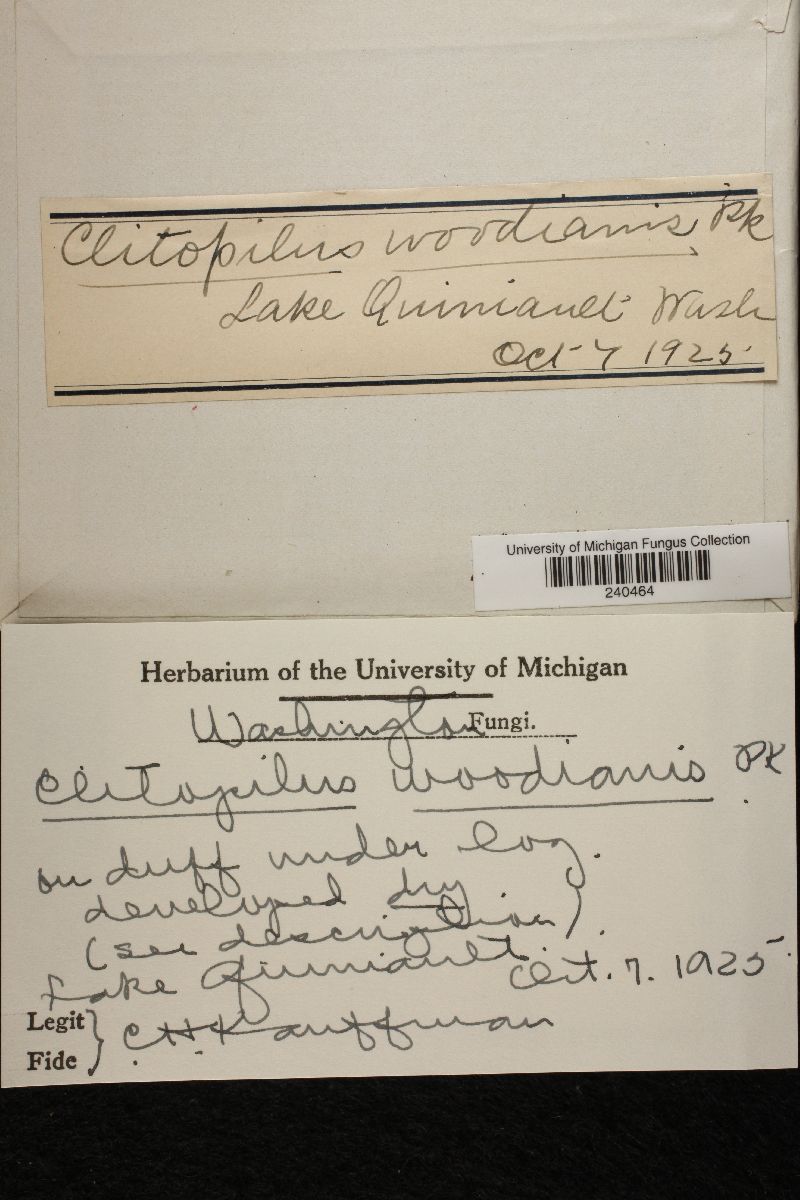 Clitopilus woodianis Pk
Lake Quiniault Wash
Oct 7 1925
University of Michigan Fungus Collection
240464
Herbarium of the University of Michigan
Washington Fungi.
Clitopilus woodianis Pk
on duff under log.
developed dry
(see description).
Lake Quiniault Oct. 7. 1925.
Legit
Fide
C H Kauffman